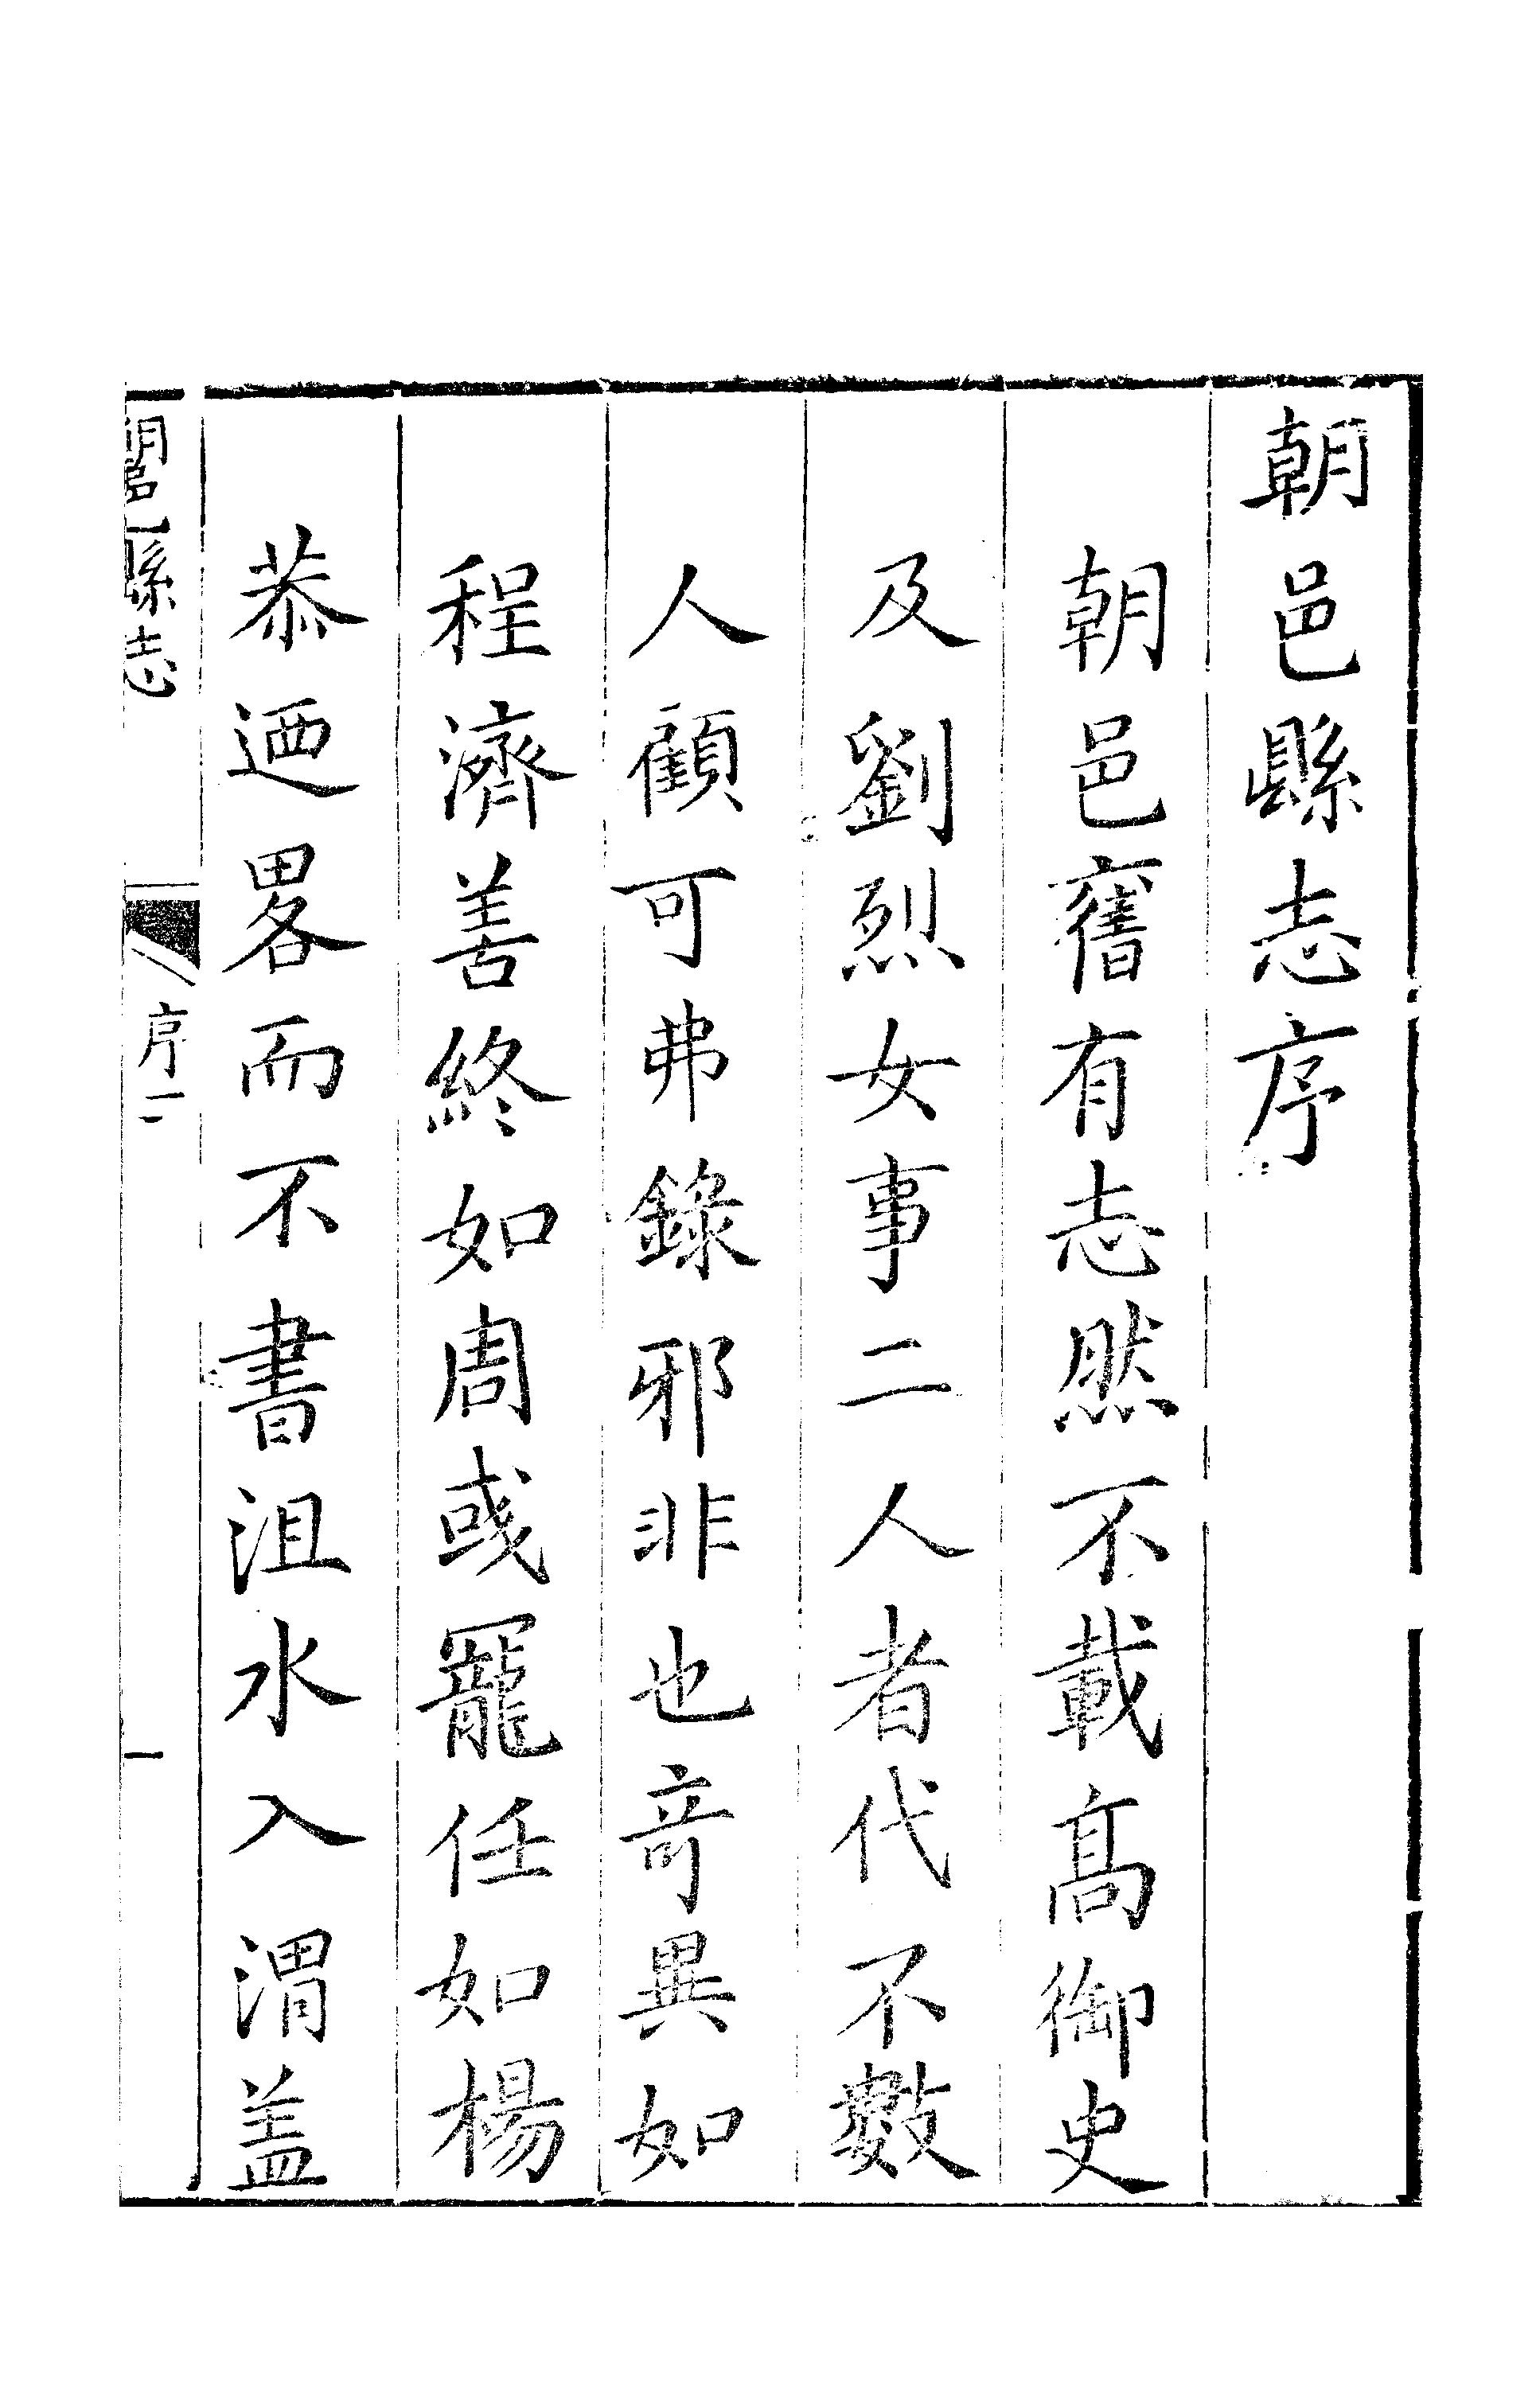 朝邑縣志序
朝邑舊有志然不載髙御史
及劉烈女事二人者代不數
人顧可弗錄邪非也竒異如
程濟善終如周彧罷任如楊
恭迺畧而不書沮水入渭盖
朝邑縣志
序一
一